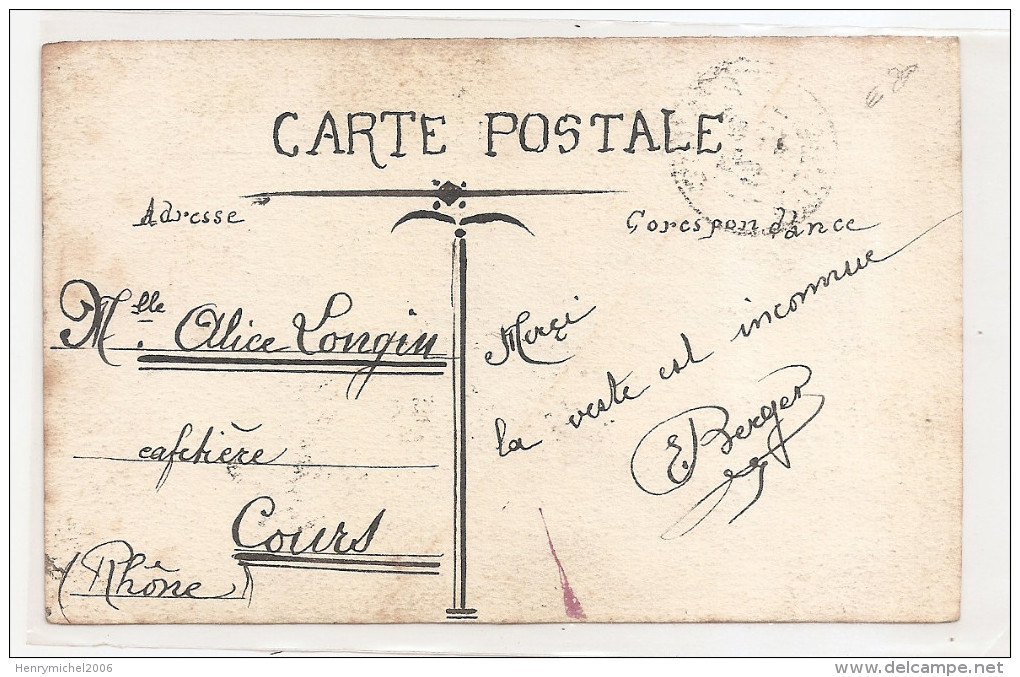 CARTE POSTALE
Adresse
Corespondance
Mlle. Alice Longin
cafetière
Cours
(Rhône)
Merci
la veste est inconnue
E. Berger
Henrymichel2006
www.delcampe.net